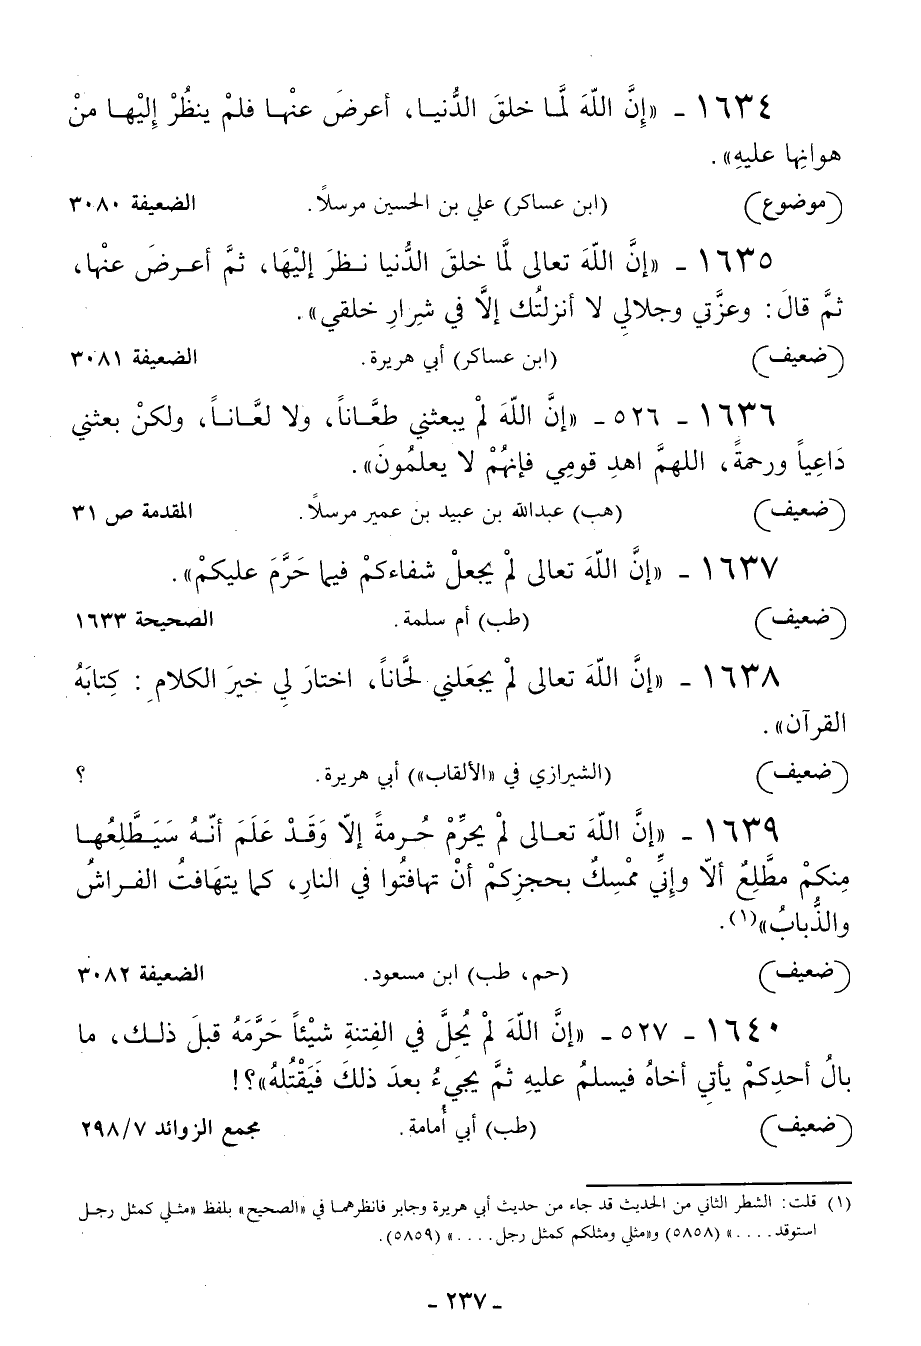 ١٦٣٤ - «إِنَّ اللّهَ لمَّا خلقَ الدُّنيـا، أعرضَ عنْهـا فلمْ ينظُرْ إِليْهـا منْ
هوانِها عليهِ».
(موضوع) (ابن عساكر) علي بن الحسين مرسلاً. الضعيفة ٣٠٨٠
١٦٣٥ - «إنَّ اللّهَ تعالى لمَّا خلقَ الدُّنيا نـظرَ إليْهَا، ثمَّ أعـرضَ عنْها،
ثمَّ قالَ: وعزَّتي وجلالِي لا أنزلتُك إلَّا في شِرارِ خلقي».
(ضعيف) (ابن عساكر) أبي هريرة. الضعيفة ٣٠٨١
١٦٣٦ - ٥٢٦ - «إنَّ اللّهَ لمْ يبعثني طعَّـاناً، ولا لعَّـانـاً، ولكنْ بعثني
دَاعِياً ورحمةً، اللهمَّ اهدِ قومِي فإنهُمْ لا يعلمُونَ».
(ضعيف) (هب) عبدالله بن عبيد بن عمير مرسلاً. المقدمة ص ٣١
١٦٣٧ - «إنَّ اللّهَ تعالى لمْ يجعلْ شفاءكمْ فيما حَرَّمَ عليكمْ».
(ضعيف) (طب) أم سلمة. الصحيحة ١٦٣٣
١٦٣٨ - «إنَّ اللّهَ تعالى لمْ يجعَلني لحَّاناً، اختارَ لِي خيرَ الكلامِ: كِتابَهُ
القرآن».
(ضعيف) (الشيرازي في «الألقاب») أبي هريرة. ؟
١٦٣٩ - «إنَّ اللّهَ تعـالى لمْ يحرِّمْ حُـرمةً إلاّ وَقَـدْ عَلَمَ أنّـهُ سَيَـطَّلِعُهـا
مِنكمْ مطَّلِعٌ ألاّ وإنِّي ممْسِكٌ بحجزِكمْ أنْ تهافتُوا في النارِ، كما يتهَافتُ الفـراشُ
والذُّبابُ»(١).
(ضعيف) (حم، طب) ابن مسعود. الضعيفة ٣٠٨٢
١٦٤٠ - ٥٢٧ - «إنَّ اللّهَ لمْ يُحِلَّ في الفِتنةِ شيْئاً حَرَّمَهُ قبلَ ذلـك، ما
بالُ أحدِكمْ يأتِي أخاهُ فيسلمُ عليهِ ثمَّ يجيءُ بعدَ ذلكَ فَيَقْتُلهُ»؟!
(ضعيف) (طب) أبي أُمامة. مجمع الزوائد ٢٩٨/٧
(١) قلت: الشطر الثاني من الحديث قد جاء من حديث أبي هريرة وجابر فانظرهمـا في «الصحيح» بلفظ «مثـلي كمثل رجـل
استوقد....» (٥٨٥٨) و«مثلي ومثلكم كمثل رجل....» (٥٨٥٩).
- ٢٣٧ -